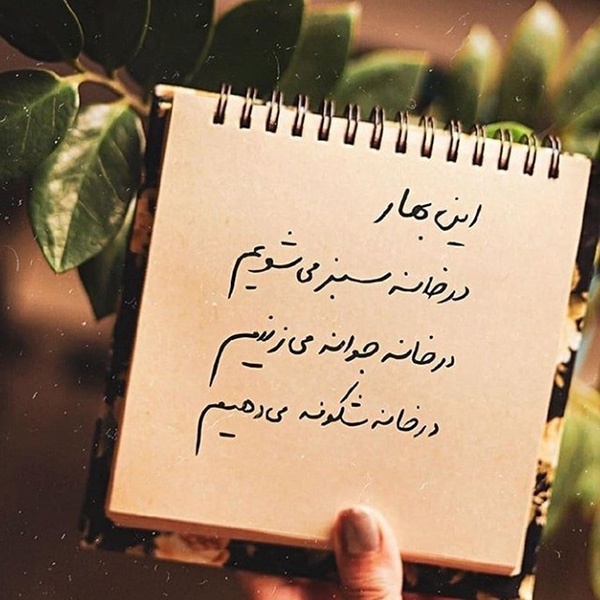 این بهار
در خانه سبز می شویم
در خانه جوانه می زنیم
در خانه شکوفه می دهیم